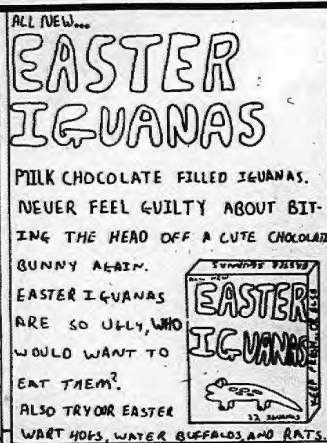 ALL NEW...
EASTER
IGUANAS
MILK CHOCOLATE FILLED IGUANAS.
NEVER FEEL GUILTY ABOUT BIT-
ING THE HEAD OFF A CUTE CHOCOLATE
BUNNY AGAIN.
EASTER IGUANAS
ARE SO UGLY, WHO
WOULD WANT TO
EAT THEM?
ALSO TRY OUR EASTER
WART HOGS, WATER BUFFALOS, AND RATS
EASTER IGUANAS
ALL NEW
EASTER
IGUANAS
12 IGUANAS
KEEP